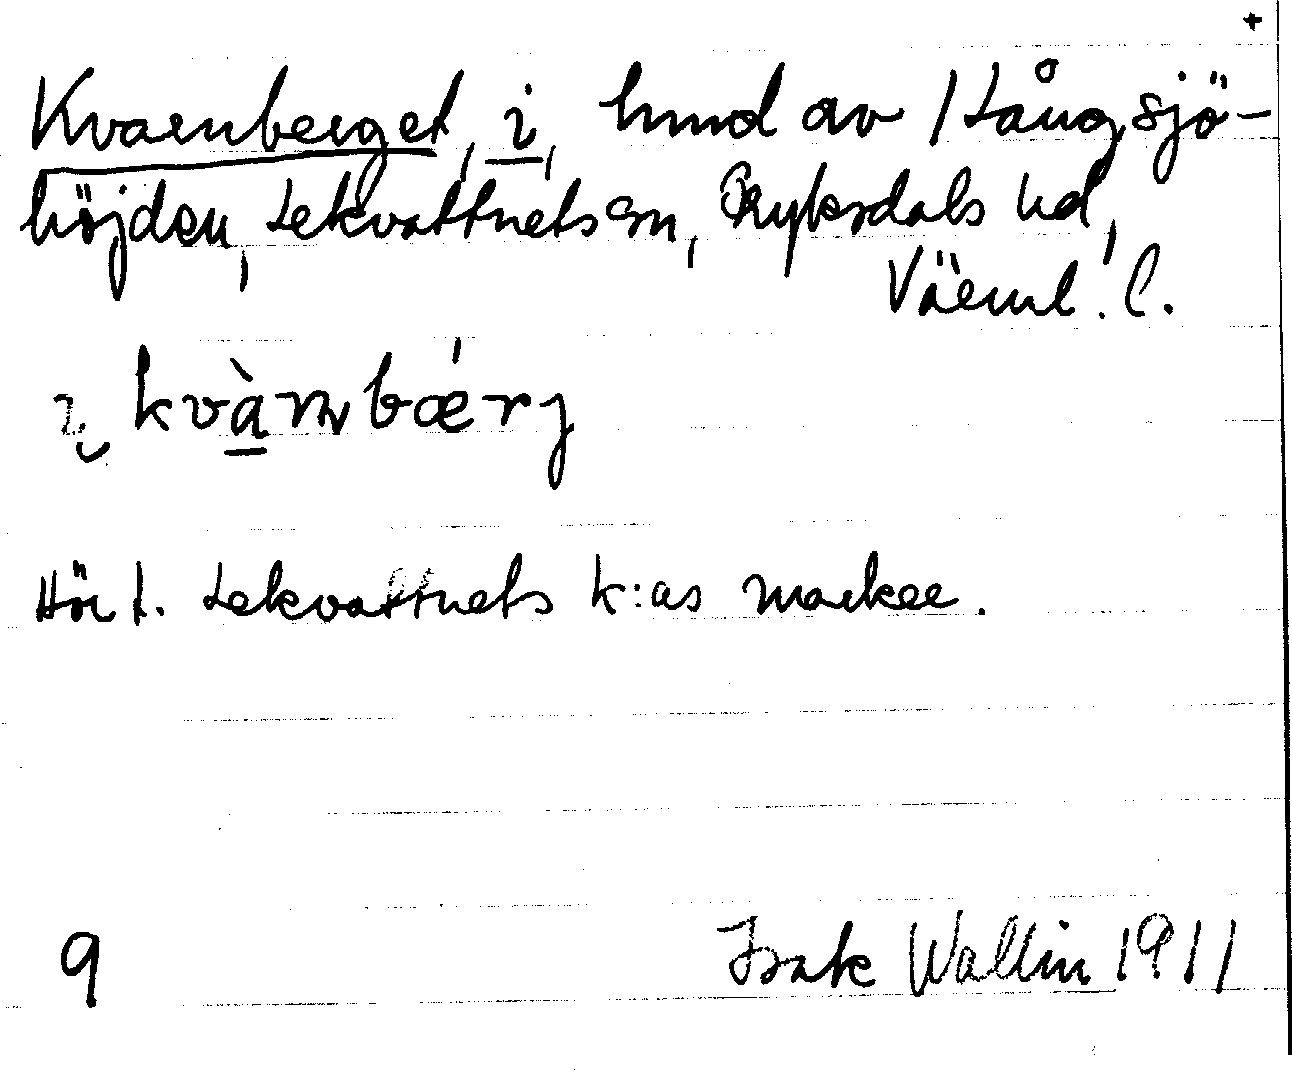 +
Kvarnberget, i, hmd av 1 Långsjö-
höjden, Lekvattnets sn, Fryksdals hd,
Värml. l.
i kvà̱rnbǽrj
Hör t. Lekvattnets k:as marker.
9 Isak Wallin 1911